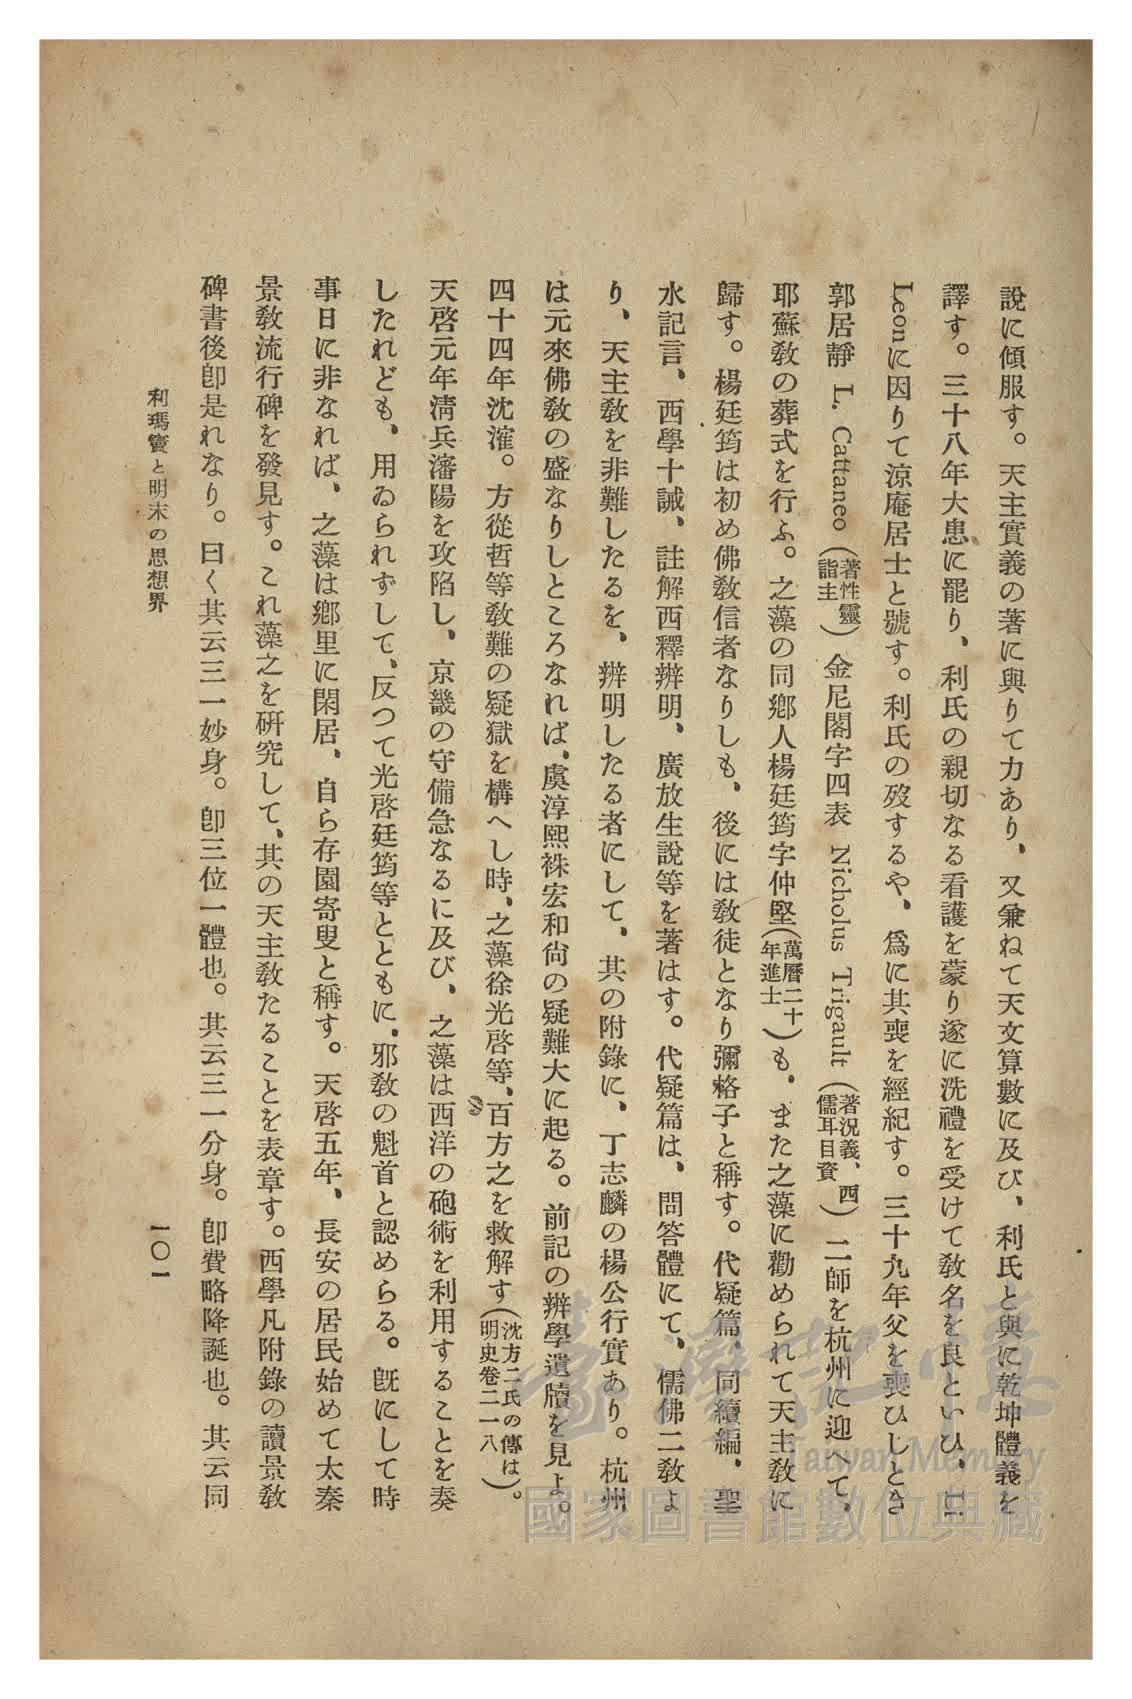 說に傾服す。天主實義の著に與りて力あり、又兼ねて天文算數に及び、利氏と與に乾坤體義を
譯す。三十八年大患に罹り、利氏の親切なる看護を蒙り遂に洗禮を受けて敎名を良といひ、
Leonに因りて涼庵居士と號す。利氏の歿するや、爲に其喪を經紀す。三十九年父を喪ひしとき
郭居靜 L. Cattaneo（著性靈詣主）金尼閣字四表 Nicholus Trigault（著況義、西儒耳目資）二師を杭州に迎へて、
耶蘇敎の葬式を行ふ。之藻の同鄕人楊廷筠字仲堅（萬曆二十年進士）も、また之藻に勸められて天主敎に
歸す。楊廷筠は初め佛敎信者なりしも、後には敎徒となり彌格子と稱す。代疑篇、同續編、聖
水記言、西學十誡、註解西釋辨明、廣放生說等を著はす。代疑篇は、問答體にて、儒佛二敎よ
り、天主敎を非難したるを、辨明したる者にして、其の附錄に、丁志麟の楊公行實あり。杭州
は元來佛敎の盛なりしところなれば、虞淳熙袾宏和尙の疑難大に起る。前記の辨學遺牘を見よ。
四十四年沈㴶。方從哲等敎難の疑獄を構へし時、之藻徐光啓等、百方之を救解す（沈方二氏の傳は明史卷二一八）。
天啓元年淸兵瀋陽を攻陷し、京畿の守備急なるに及び、之藻は西洋の砲術を利用することを奏
したれども、用ゐられずして、反つて光啓廷筠等とともに、邪敎の魁首と認めらる。旣にして時
事日に非なれば、之藻は鄕里に閑居、自ら存園寄叟と稱す。天啓五年、長安の居民始めて太秦
景敎流行碑を發見す。これ藻之を硏究して、其の天主敎たることを表章す。西學凡附錄の讀景敎
碑書後卽是れなり。曰く其云三一妙身。卽三位一體也。其云三一分身。卽費略降誕也。其云同
利瑪竇と明末の思想界
一〇一
臺灣記憶
Taiwan Memory
國家圖書館數位典藏